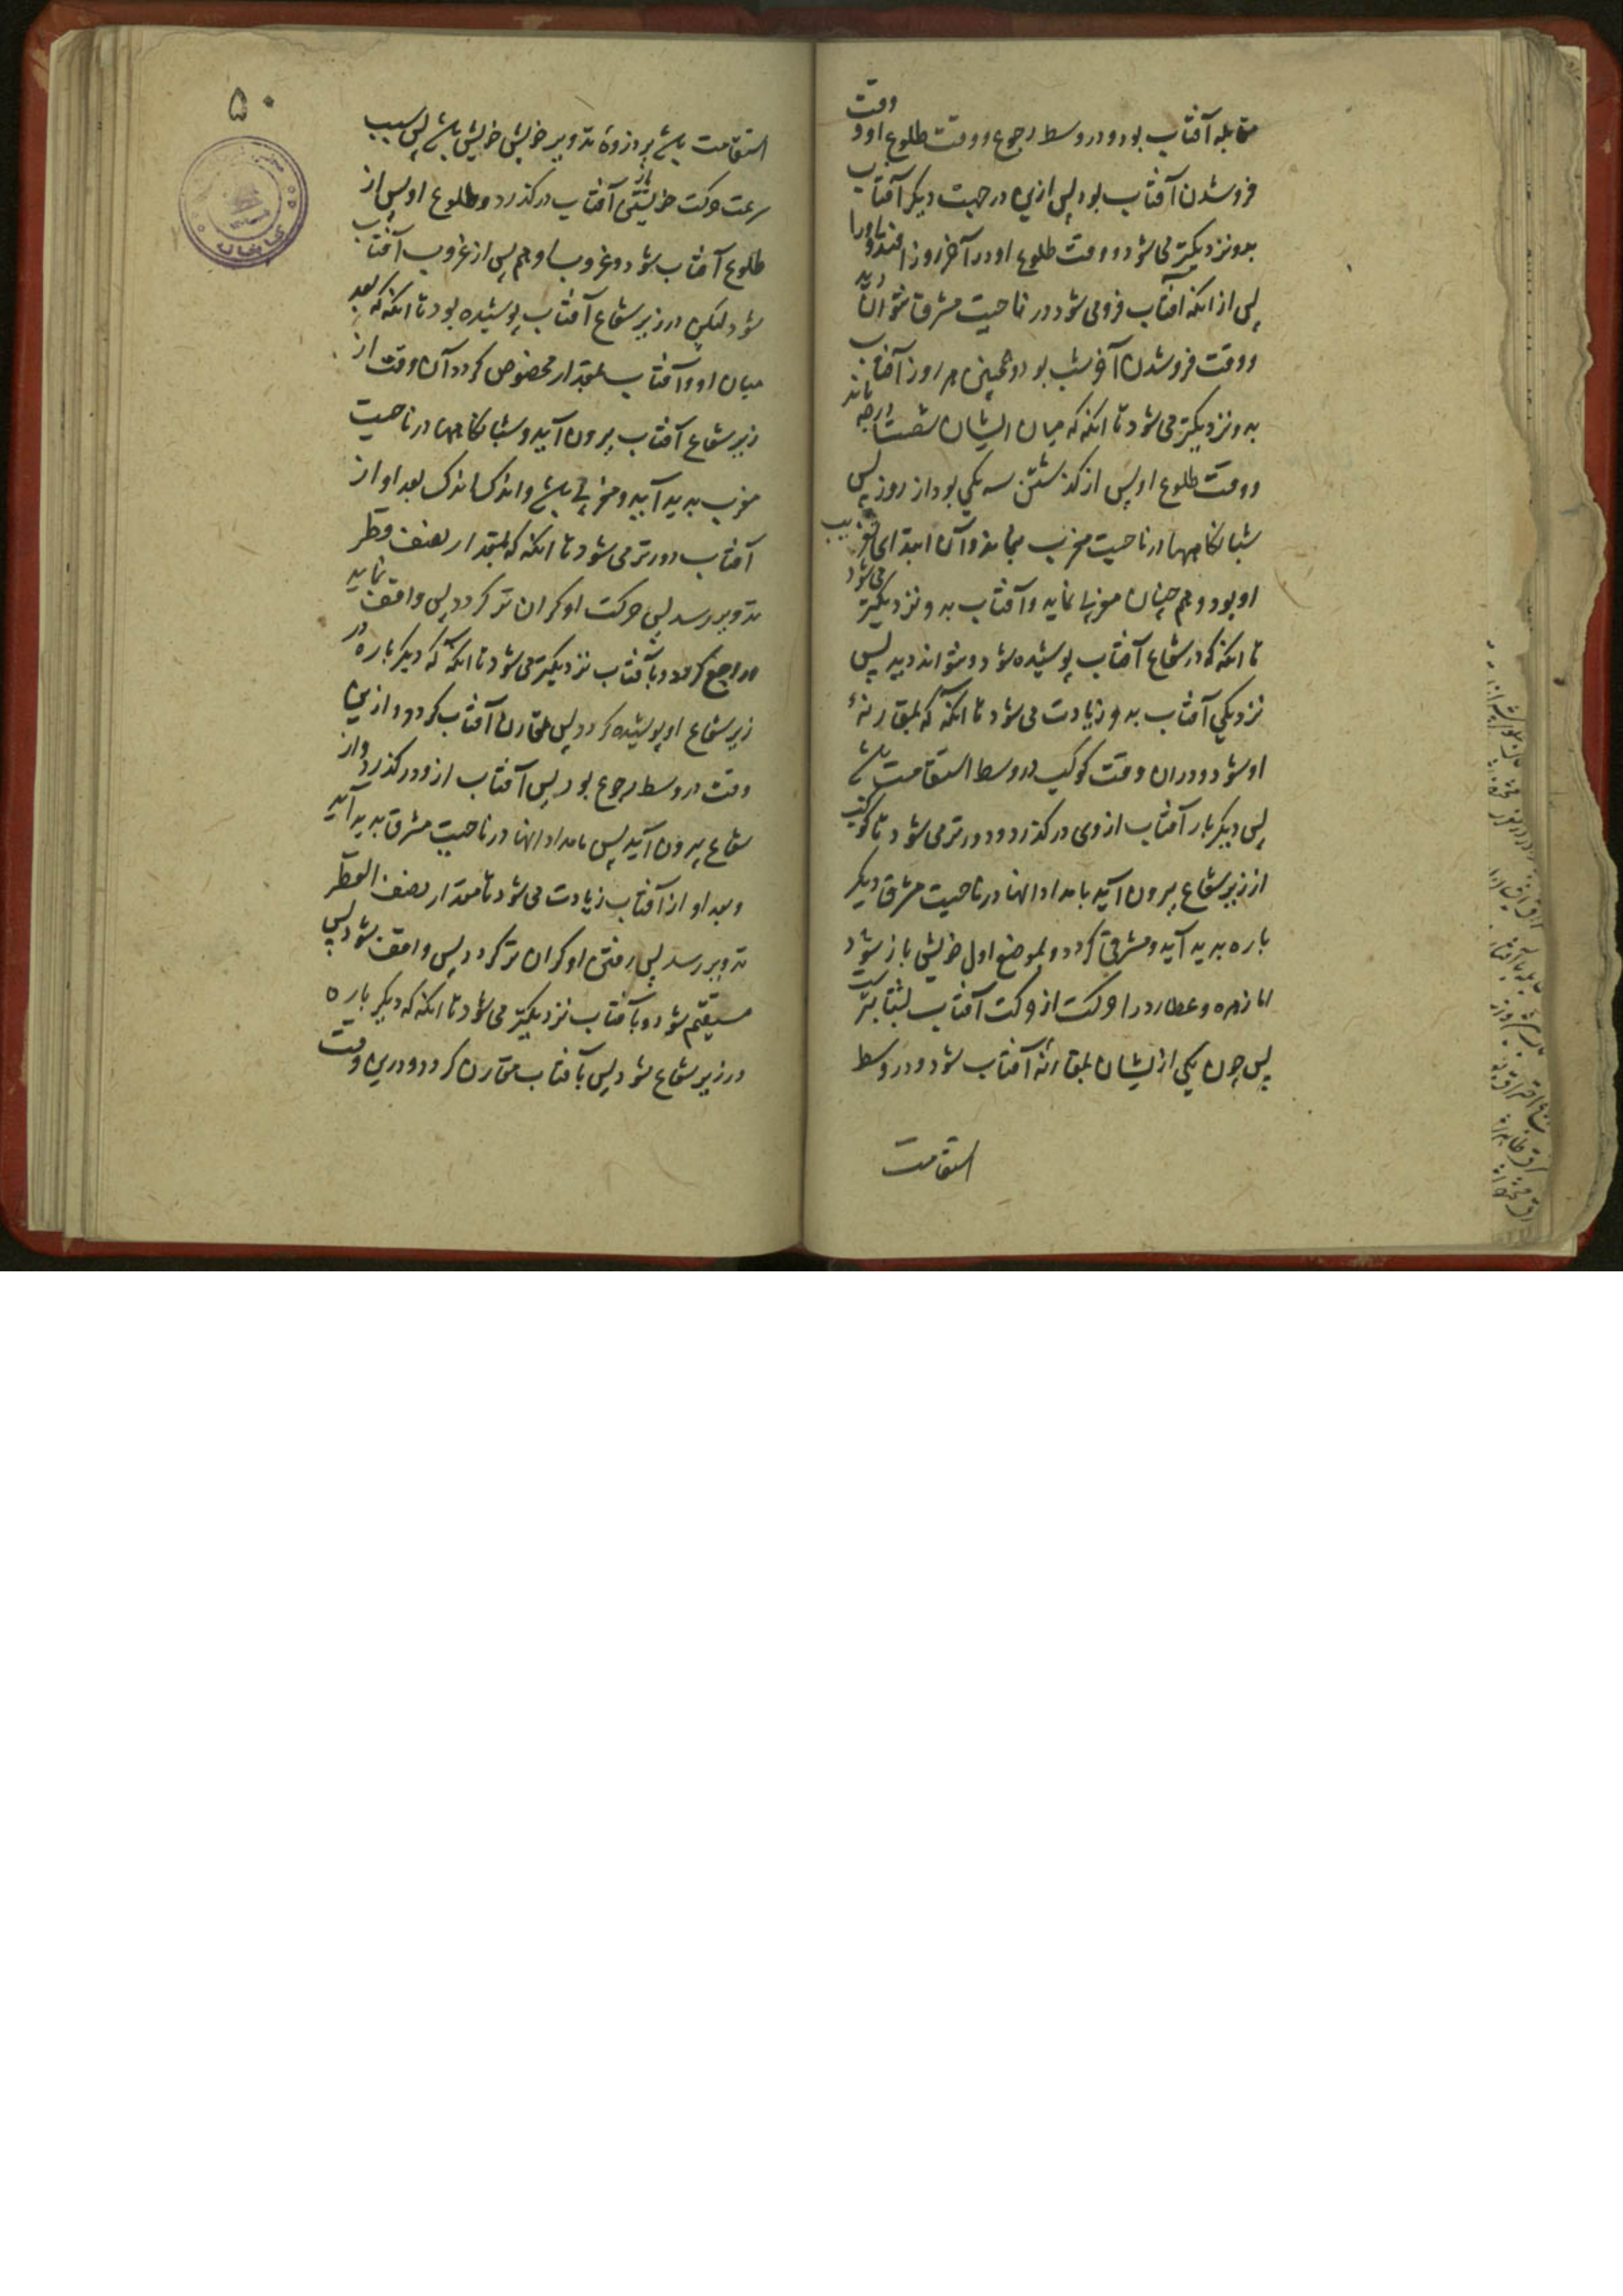 مقابله آفتاب بود و در وسط رجوع و وقت طلوع او وقت
فروشدن آفتاب بود پس ازین در جهت دیگر آفتاب
بدو نزدیکتر می شود و وقت طلوع او در آخر روز افتد و او را
پس از انکه آفتاب فرو می شود در ناحیت مشرق توان دید
و وقت فروشدن آخر شب بود و همچنین هر روز آفتاب
بدو نزدیکتر می شود تا انکه که میان ایشان شصت درجه ماند
و وقت طلوع او پس از کذشتن سه یکی بود از روز پس
شبانکاهها در ناحیت مغرب نماید و آن ابتدای تغریب
او بود و هم چنان مغربی نماید و آفتاب بدو نزدیکتر می شود
تا انکه که در شعاع آفتاب پوشیده شود و نتواند دید پس
نزدیکی آفتاب بدو زیادت می شود تا انکه که بمقارنهٔ
او شود و دران وقت کوکب در وسط استقامت باشد
پس دیگر بار آفتاب از وی در کذرد و دورتر می شود تا کوکب
از زیر شعاع بیرون آید بامدادانها در ناحیت مشرق دیگر
باره بدید آید و مشرقی کردد و بموضع اول خویش باز شود
اما زهره و عطارد را حرکت از حرکت آفتاب بشتابترست
پس چون یکی ازیشان بمقارنهٔ آفتاب شود و در وسط
استقامت
۵۰
استقامت باشد بر ذروهٔ تدویر خویش خویش باشد پس بسبب
سرعت حرکت خویش از آفتاب در کذرد و طلوع او پس از
طلوع آفتاب شود و غروب او هم پس از غروب آفتاب
شود لیکن در زیر شعاع آفتاب پوشیده بود تا انکه که بعد
میان او و آفتاب بمقدار مخصوص کردد آن وقت از
زیر شعاع آفتاب بیرون آید و شبانکاهها در ناحیت
مغرب بدید آید و مغربی باشد و اندک اندک بعد او از
آفتاب دورتر می شود تا انکه که بمقدار نصف قطر
تدویر رسد پس حرکت او کران تر کردد پس واقف نماید
و راجع کردد و بآفتاب نزدیکتر می شود تا انکه که دیکر باره در
زیر شعاع او پوشیده کردد پس مقارن آفتاب کردد و ازین
وقت در وسط رجوع بود پس آفتاب ازو در کذرد و از
شعاع بیرون آید پس بامدادانها در ناحیت مشرق بدید آید
و بعد او از آفتاب زیادت می شود تا مقدار نصف القطر
تدویر رسد پس رفتن او کران تر کردد پس واقف شود پس
مستقیم شود و بآفتاب نزدیکتر می شود تا انکه که دیکر باره
در زیر شعاع شود پس بآفتاب مقارن کردد و درین وقت